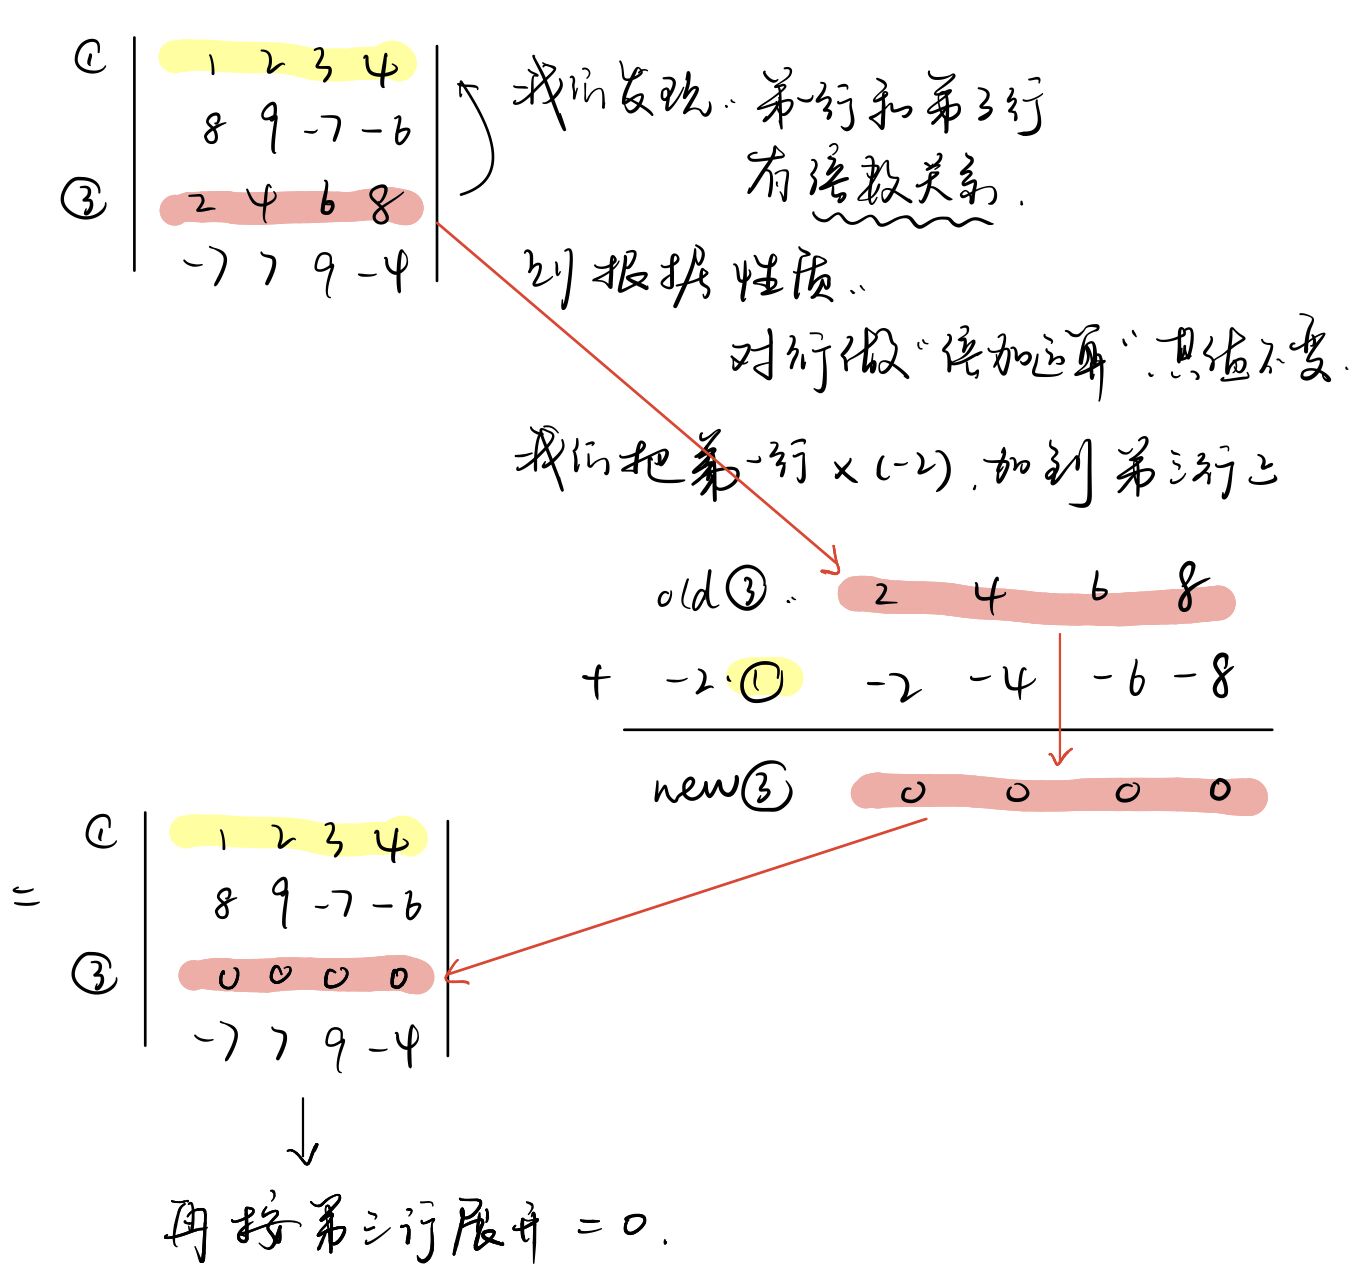 ① 1 2 3 4
8 9 -7 -6
③ 2 4 6 8
-7 7 9 -4
我们发现: 第一行和第3行
有倍数关系.
则根据性质:
对行做"倍加运算".其值不变.
我们把第一行×(-2).加到第三行上
old③: 2 4 6 8
+ -2·① -2 -4 -6 -8
new③ 0 0 0 0
① 1 2 3 4
= 8 9 -7 -6
③ 0 0 0 0
-7 7 9 -4
再按第三行展开=0.